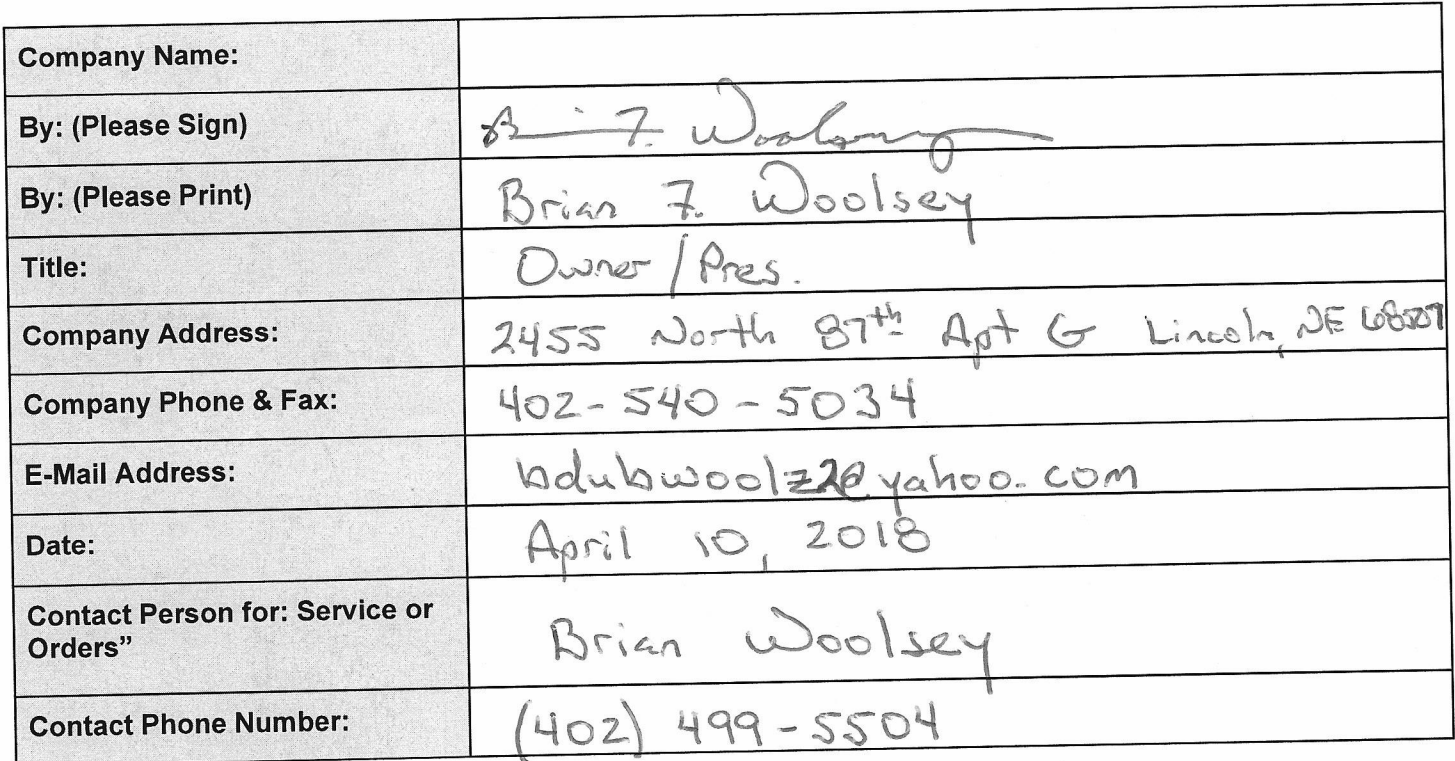 Company Name:
By: (Please Sign) B F. Woolsey
By: (Please Print) Brian F. Woolsey
Title: Owner / Pres.
Company Address: 2455 North 87th Apt G Lincoln, NE 68507
Company Phone & Fax: 402-540-5034
E-Mail Address: bdubwoolz2@yahoo.com
Date: April 10, 2018
Contact Person for: Service or
Orders” Brian Woolsey
Contact Phone Number: (402) 499-5504